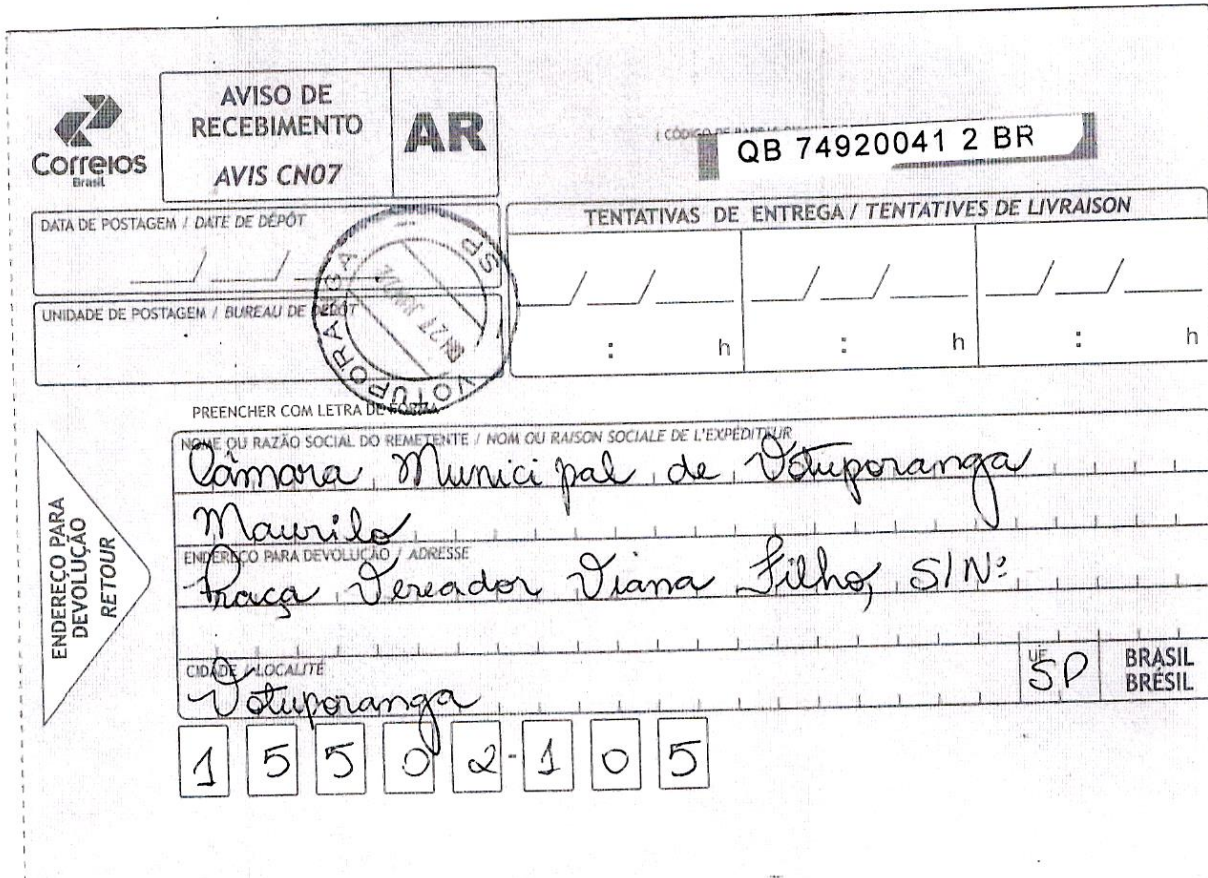 Correios
Brasil
AVISO DE
RECEBIMENTO
AVIS CN07
AR
QB 74920041 2 BR
DATA DE POSTAGEM / DATE DE DÉPÔT
__/__/__
UNIDADE DE POSTAGEM / BUREAU DE DÉPÔT
VOTUPORANGA SP
TENTATIVAS DE ENTREGA / TENTATIVES DE LIVRAISON
__/__/__ __/__/__ __/__/__
: h : h : h
PREENCHER COM LETRA DE FORMA
ENDEREÇO PARA
DEVOLUÇÃO
RETOUR
NOME OU RAZÃO SOCIAL DO REMETENTE / NOM OU RAISON SOCIALE DE L'EXPÉDITEUR
Câmara Municipal de Votuporanga
Maurilo
ENDEREÇO PARA DEVOLUÇÃO / ADRESSE
Praça Vereador Viana Filho, S/Nº
CIDADE / LOCALITÉ
Votuporanga
UF
SP
BRASIL
BRÉSIL
15502-105